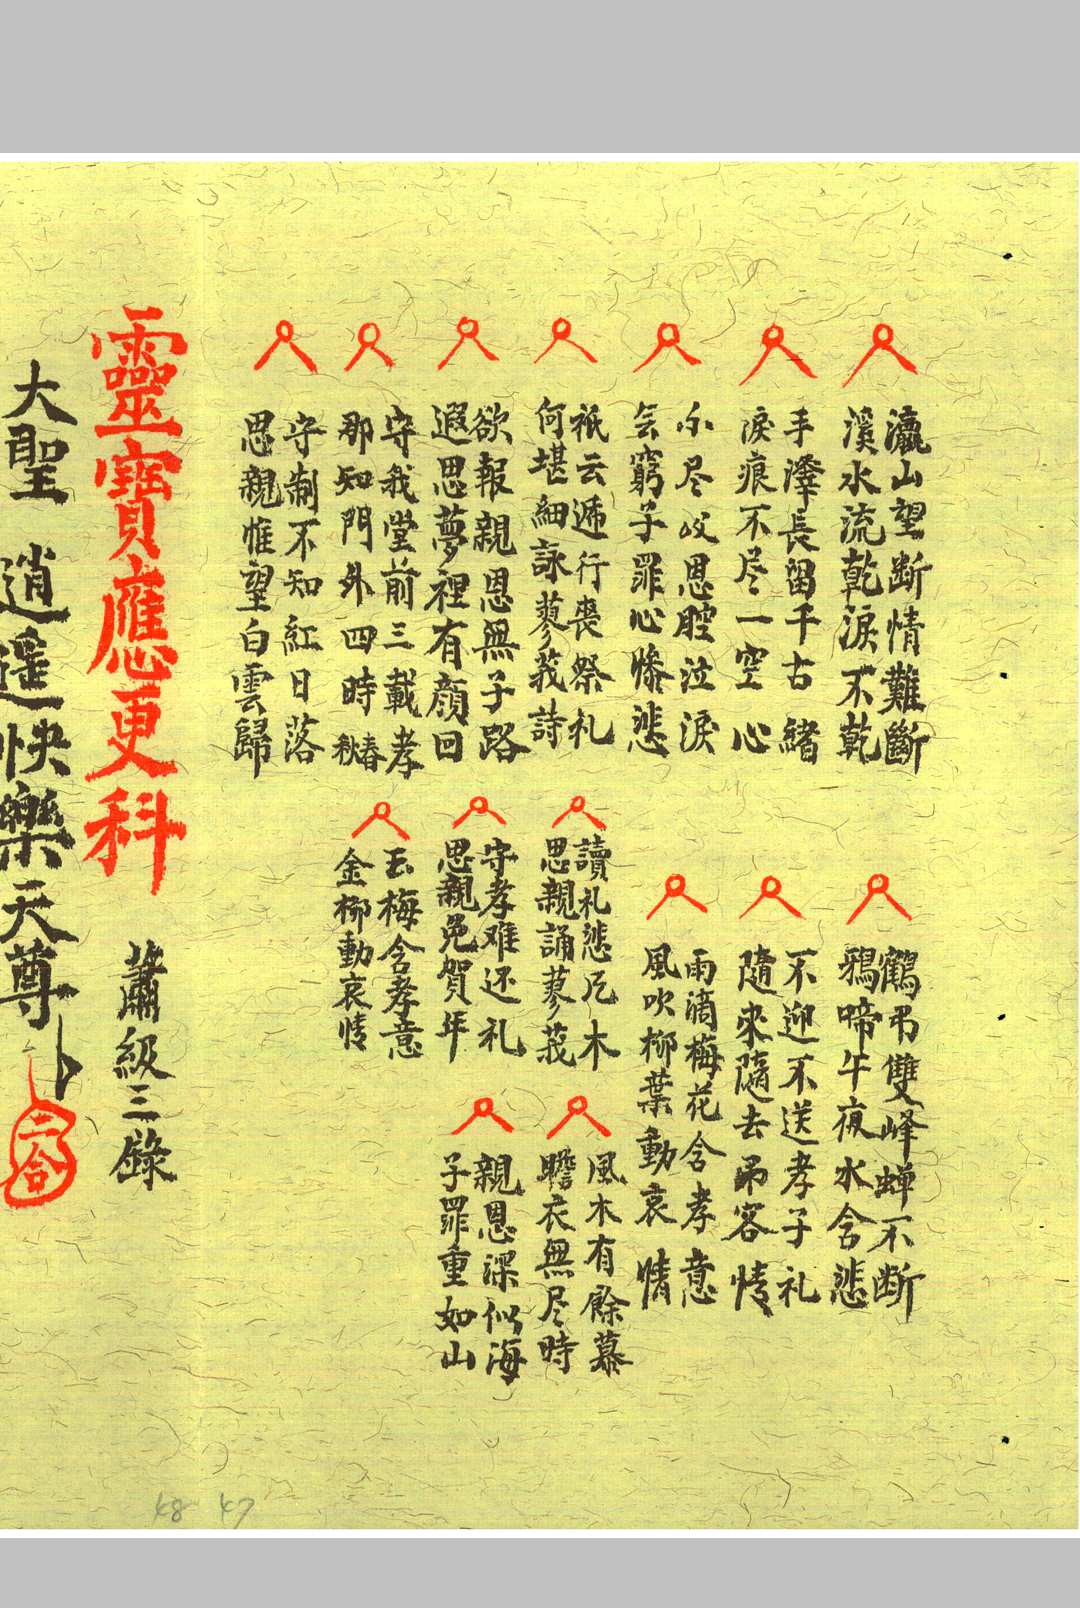 瀛山望断情難斷
溪水流乾淚不乾
手澤長留千古緒
淚痕不尽一空心
尔尽㕛恩腔泣淚
子罪心慘悲
祇云遞行喪祭礼
何堪細詠蓼莪詩
欲報親恩無子路
遐思夢裡有顔回
守我堂前三載孝
那知門外四時春秋
守制不知紅日落
思親惟望白雲歸
鶴弔雙峰蝉不断
鴉啼午夜水含悲
不迎不送孝子礼
隨來隨去弔客情
雨滴梅花含孝意
風吹柳葉動哀情
讀礼悲凡木
思親誦蓼莪
守孝难还礼
思親免賀年
玉梅含孝意
金柳動哀情
風木有餘慕
瞻衣無尽時
親恩深似海
子罪重如山
靈寶應更科
蕭級三錄
大聖 逍遥快樂天尊
二合
48 47